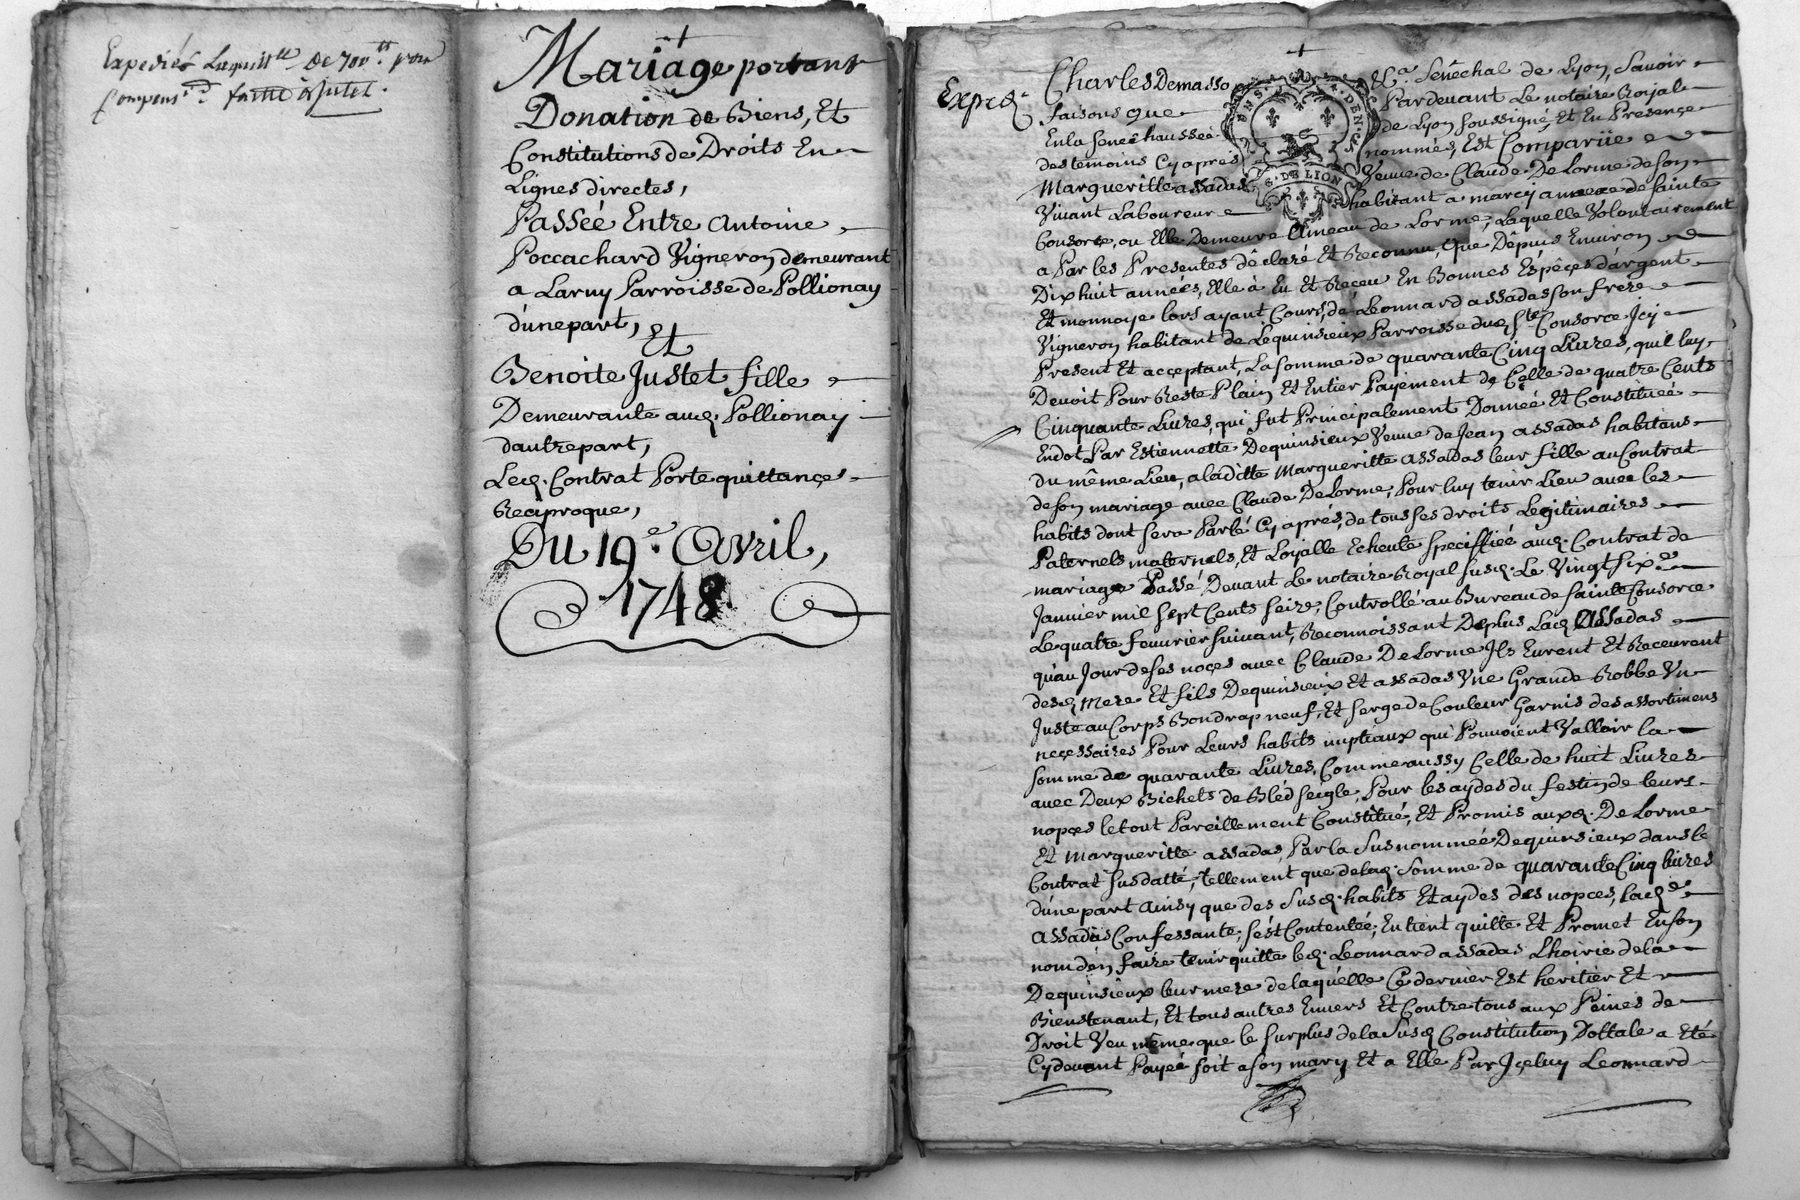 Expediés Laquitt.ce De 700.tt pour
Compens.on faitte à Jutet.
Mariage portant
Donation de Biens, Et
Constitutions de Droits En
Lignes directes,
Passée Entre Antoine
Poccachard Vigneron demeurant
a Larny Parroisse de Pollionay
d'une part, Et
Benoite Justet fille
Demeurante aud. Pollionay
dautre part,
Led. Contrat Porte quittançe
Reciproque,
Du 19.e Avril,
1748.
Exped.
Charles Demasso
S.DE LION
&a. Senêchal de Lyon, Savoir
faisons que Pardevant Le notaire Royal
En la Senêchaussée de Lyon soussigné, Et En Presençe
des temoins Cy aprés nommés, Est Compariie
Margueritte assadas Veuve de Claude De Lorme de son
Vivant Laboureur habitant a marcy annexe de Sainte
Consorce, ou Elle Demeure Ameau de Lorme, Laquelle Volontairement
a Par les Presentes déclaré et Reconnu, Que Dêpuis Environ
Dix huit années, Elle à Eu Et Reçeu En Bonnes Espêçes d'argent
Et monnoye lors ayant Cours, de Leonnard assadas son frere
Vigneron habitant de Lequinsieux Parroisse dud. Ste. Consorce Icy
Present Et acceptant, La somme de quarante Cinq Livres, quil luy
Devoit Pour Reste Plain Et Entier Payement de Celle de quatre Cents
Cinquante Livres, qui fut Principalement Donneé Et Constitueé
Endot Par Estiennette Dequinsieux Veuve de Jean assadas habitans
du même Lieu, a laditte Margueritte assadas leur fille au Contrat
de son mariage avec Claude De Lorme, Pour luy tenir Lieu avec les
habits dont sera Parlé Cy aprés, de tous ses droits Legitimaires
Paternels maternels, Et Loyalle Echeute speciffieé aud. Contrat de
mariage Passé Devant Le notaire Royal susd. Le Vingt Six.e
Janvier mil sept Cents seize, Controllé au Bureau de Sainte Consorce
Le quatre fevvrier suivant, Reconnoissant Deplus Lad. Assadas
qu'au Jour de ses noçes avec Claude De Lorme Ils Eurent Et Receurent
desd. Mere Et fils Dequinsieux Et assadas Vne Grande Robbe Vn
Juste au Corps Bon drap neuf, Et serge de Couleur Garnis des assortimens
neçessaires Pour Leurs habits nuptiaux qui Pouvoient Valloir la
somme de quarante Livres, Comme aussy Celle de huit Livres
avec Deux Bichets de Bléd seigle, Pour les aydes du festin de leurs
nopçes le tout Pareillement Constitué, Et Promis auxd. De Lorme
Et Margueritte assadas, Par la susnommeé Dequinsieux dans le
Contrat susdatté, tellement que de lad. somme de quarante Cinq livres
d'une part Ainsy que des susd. habits Et aydes des nopces, lad.e
assadas Confessante, s'est Contenteé, En tient quitte Et Promet En son
nom d'en faire tenir quitte led. Leonnard assadas L'hoirie de la
Dequinsieux leur mere de laquélle Ce dernier Est heritier Et
Bienstenant, Et tous autres Envers Et Contre tous aux Peines de
Droit Veu même que le surplus de la susd. Constitution Dottale a Eté
Cy devant Payeé soit a son mary Et a Elle Par Içeluy Leonnard